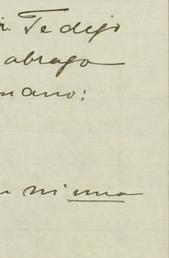 r. Te dejo
abrazo
mano:
n ni una